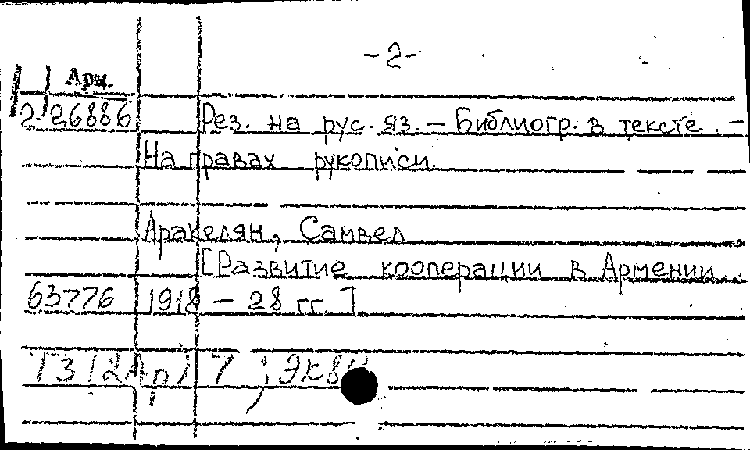 -2-
Арм.
2-26886 Рез. на рус. яз. – Библиогр. в тексте. –
На правах рукописи.
Аракелян, Самвел
[Развитие кооперации в Армении..
63776 1918 – 28 гг.]
Т3(2Ар)7;